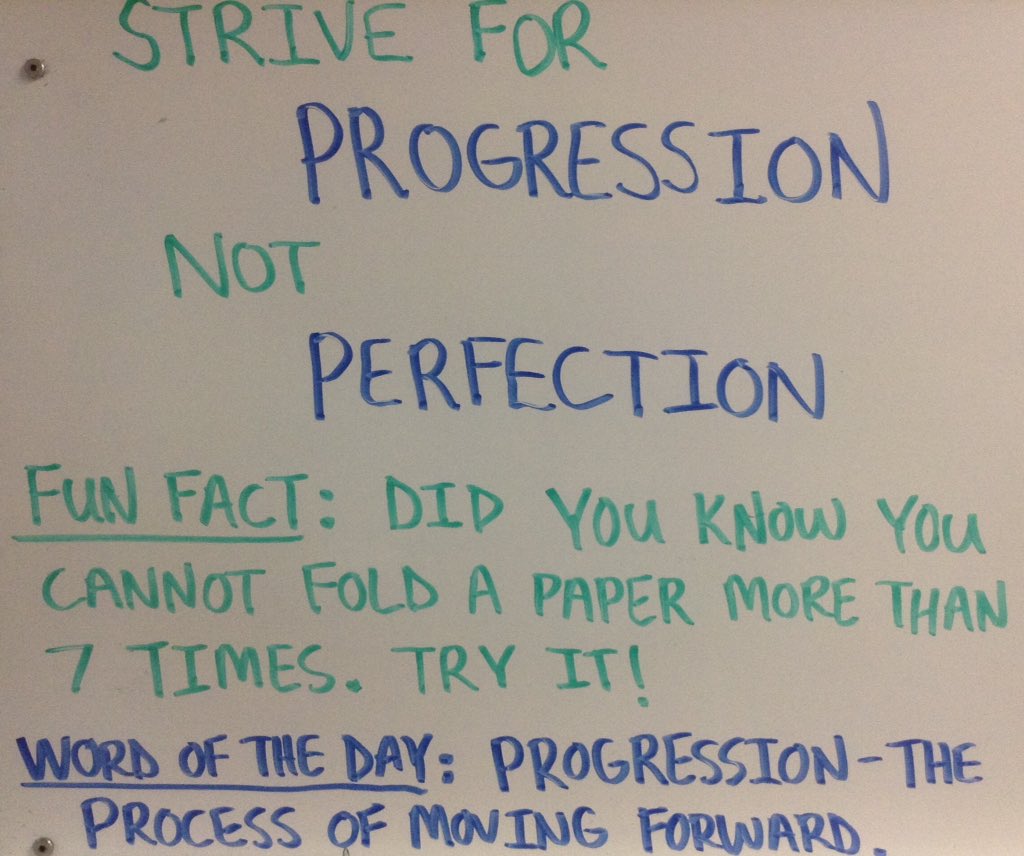 STRIVE FOR
PROGRESSION
NOT
PERFECTION
FUN FACT: DID YOU KNOW YOU
CANNOT FOLD A PAPER MORE THAN
7 TIMES. TRY IT!
WORD OF THE DAY: PROGRESSION - THE
PROCESS OF MOVING FORWARD.